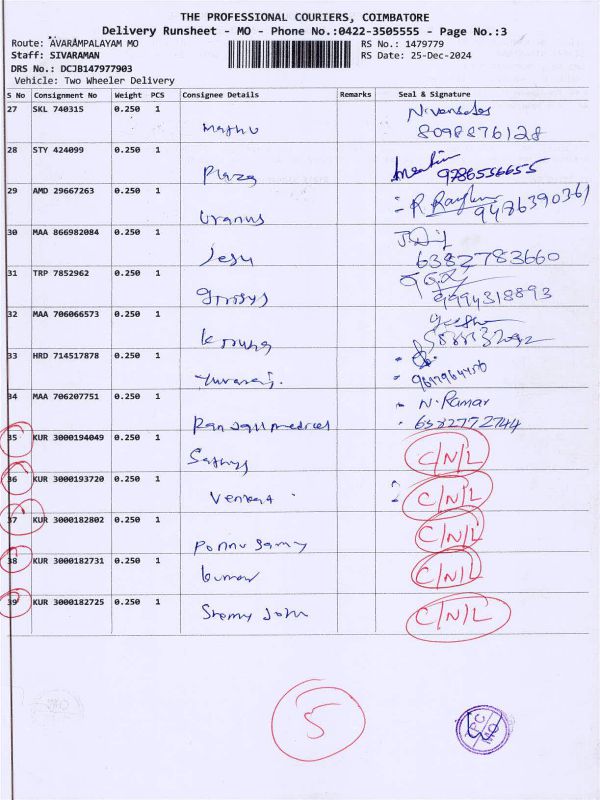 THE PROFESSIONAL COURIERS, COIMBATORE
Delivery Runsheet - MO - Phone No.:0422-3505555 - Page No.:3
Route: AVARAMPALAYAM MO RS No.: 1479779
Staff: SIVARAMAN RS Date: 25-Dec-2024
DRS No.: DCJB147977903
Vehicle: Two Wheeler Delivery
S No Consignment No Weight PCS Consignee Details Remarks Seal & Signature
27 SKL 740315 0.250 1
Mathu 8098876128
28 STY 424099 0.250 1
Plaza 9786536655
29 AMD 29667263 0.250 1 R
Uranus 9486390361
30 MAA 866982084 0.250 1
Jesu 6382783660
31 TRP 7852962 0.250 1
9994318893
32 MAA 706066573 0.250 1
33 HRD 714517878 0.250 1
Yuvaraj.
34 MAA 706207751 0.250 1 N. Ramar
medical 6382772744
35 KUR 3000194049 0.250 1 C/N/L
Sathya
36 KUR 3000193720 0.250 1 C/N/L
Venkat
37 KUR 3000182802 0.250 1 C/N/L
Ponnu Samy
38 KUR 3000182731 0.250 1 C/N/L
kumar
39 KUR 3000182725 0.250 1 C/N/L
John
5
TPC
MO